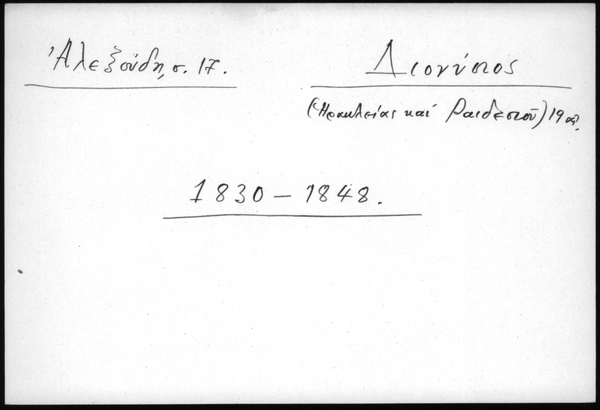 Ἀλεξούδη, σ. 17.
Διονύσιος
(Ἡρακλείας καί Ραιδεστοῦ) 19 αἰ.
1830 – 1848.